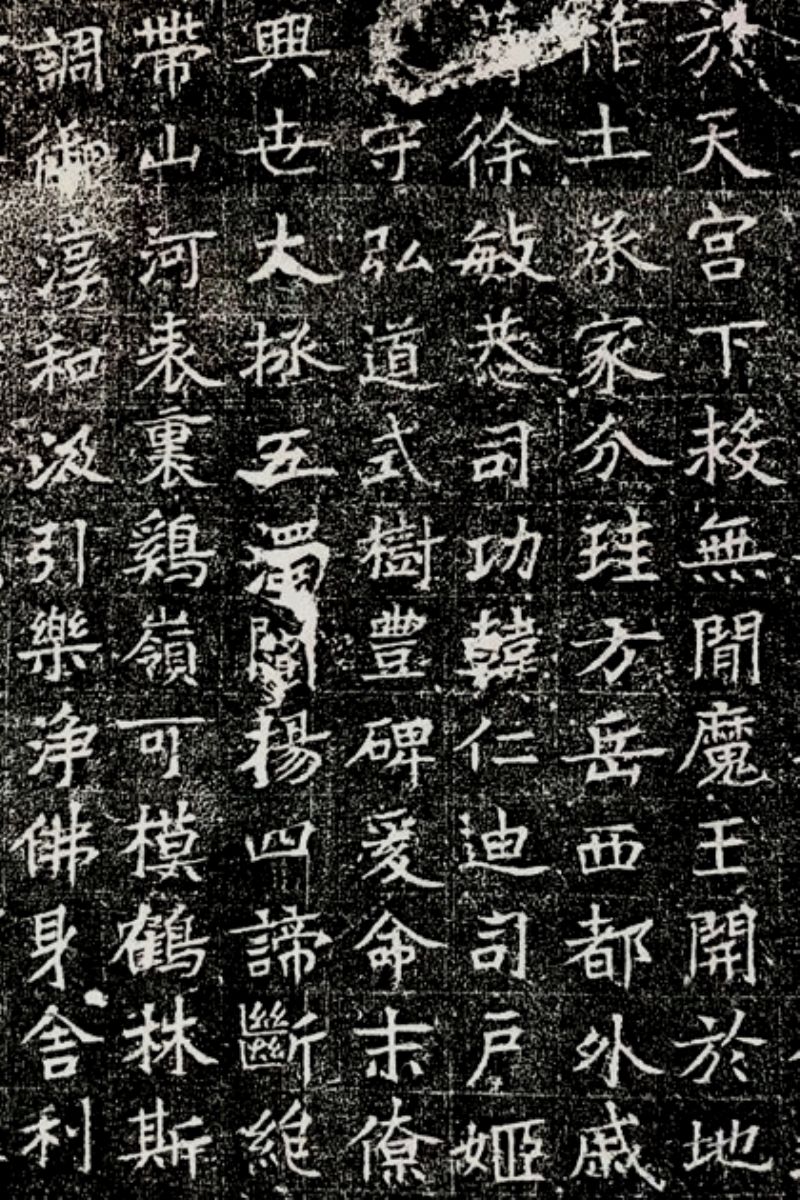 於天宮下救無間魔王開於地
土承家分珪方岳西都外戚
徐敏恭司功韓仁迪司戶姬
守弘道式樹豐碑爰命末僚
興世大拯五濁闡楊四諦斷維
帶山河表裏鷄嶺可模鶴林斯
調御淳和汲引樂淨佛身舍利